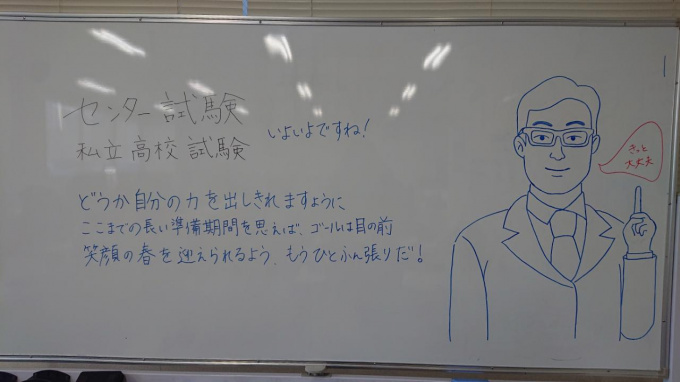 センター試験
私立高校試験
いよいよですね!
どうか自分の力を出しきれますように
ここまでの長い準備期間を思えば、ゴールは目の前
笑顔の春を迎えられるよう、もうひとふん張りだ!
きっと
大丈夫